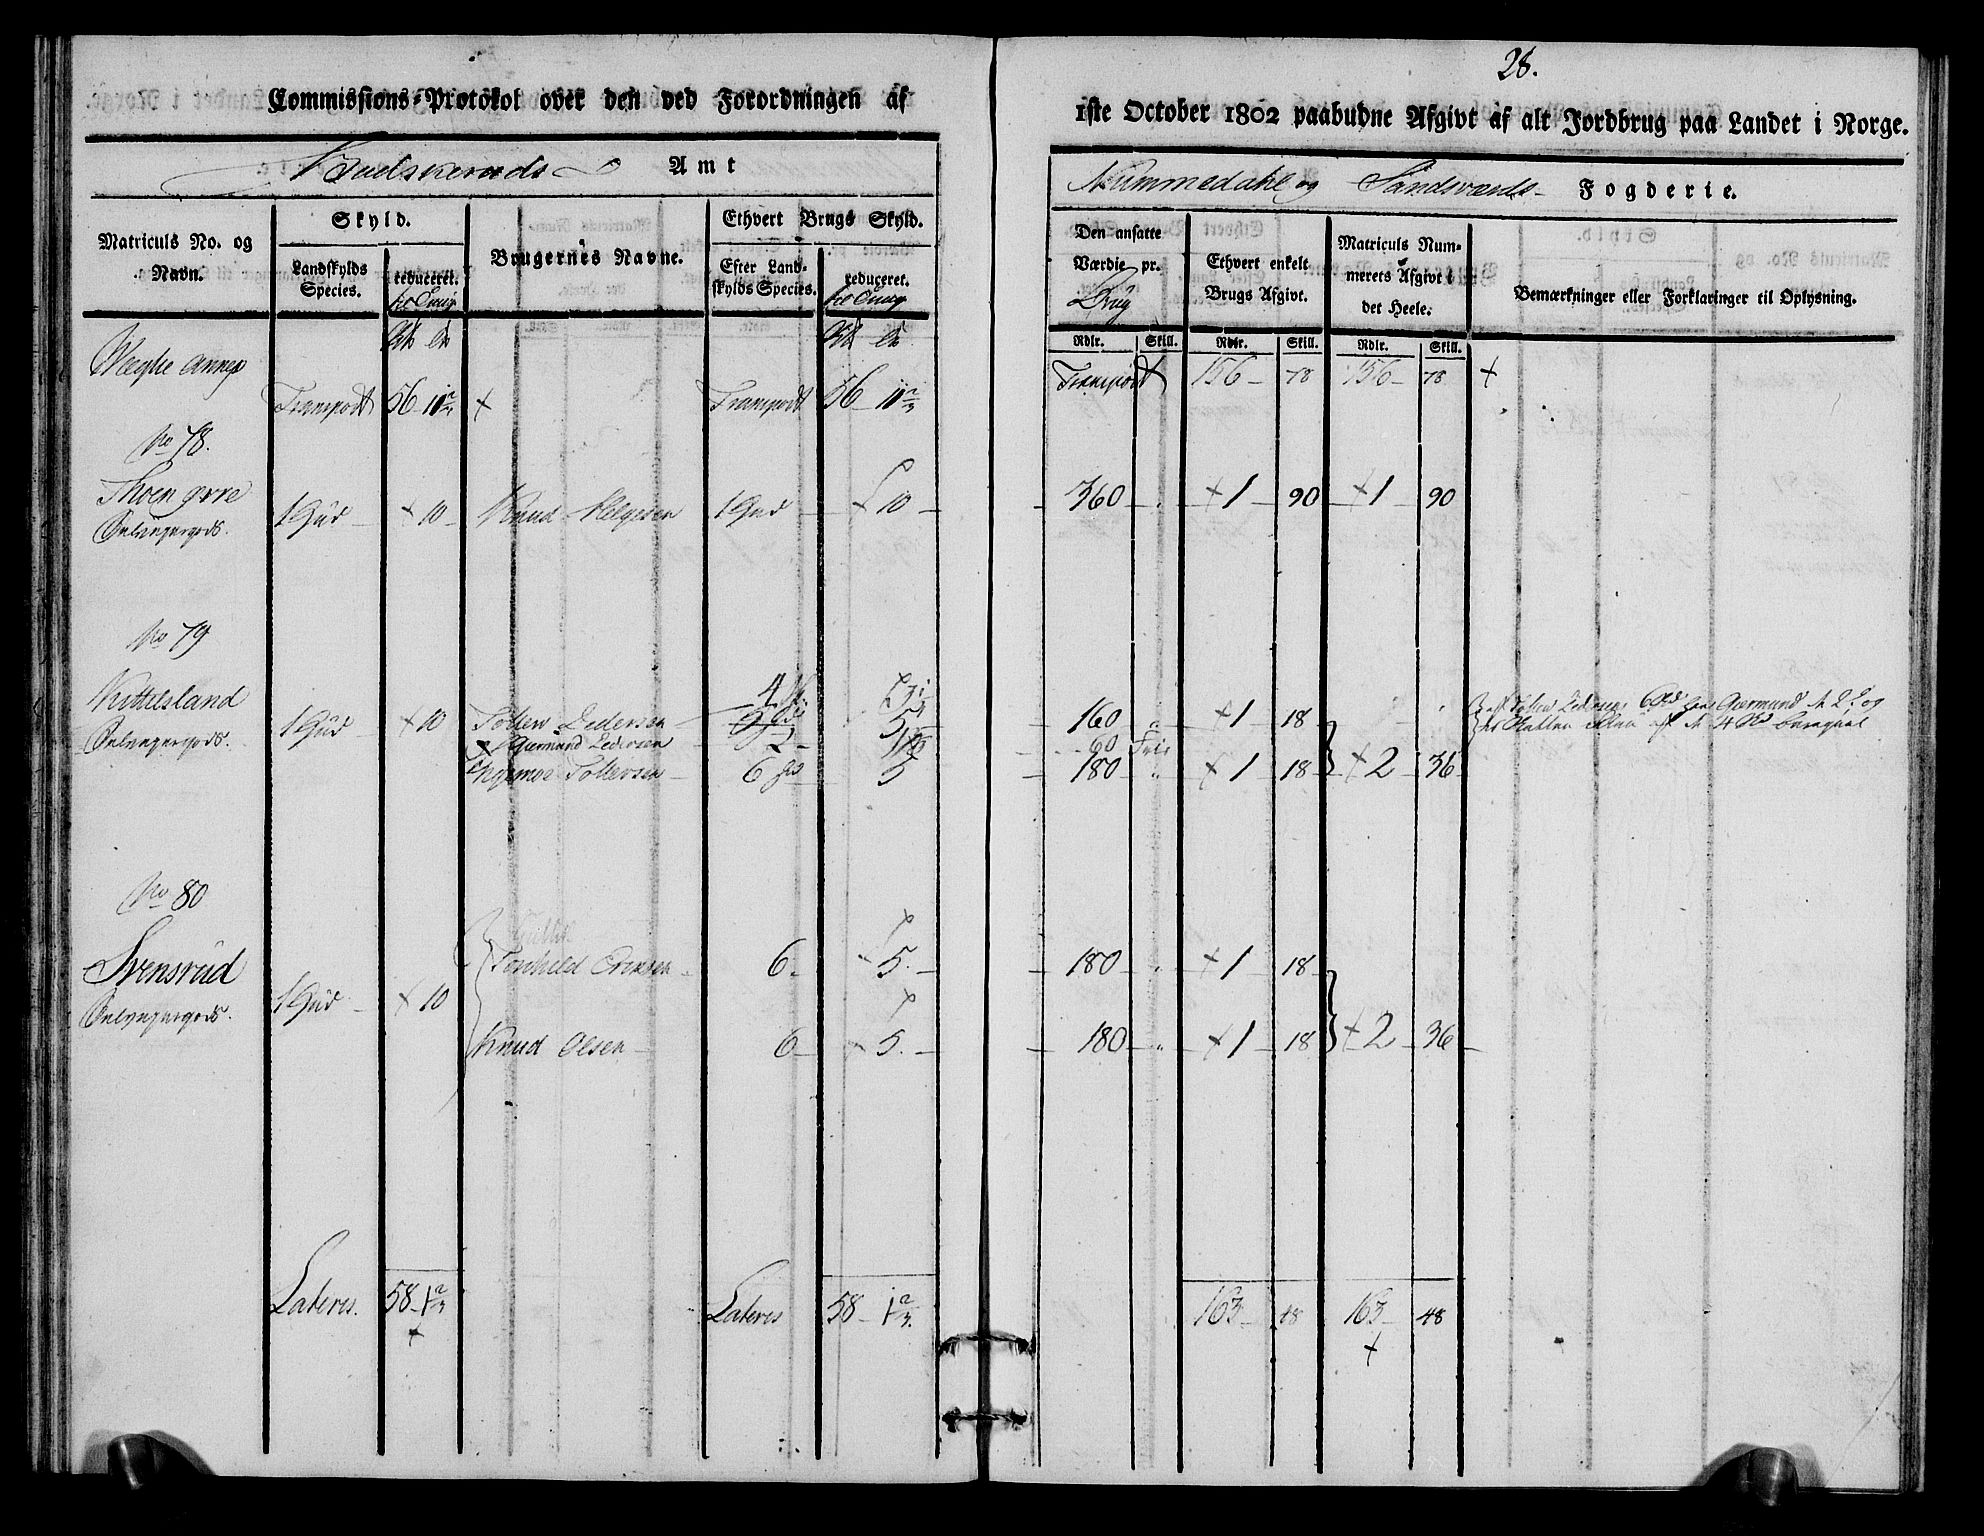 28.
Commissions-Protokol over den ved Forordningen af
1ste October 1802 paabudne Afgivt af alt Jordbrug paa Landet i Norge.
Budskeruds Amt
Nummedahl og Sandsværds Fogderie.
Matriculs No. og Navn.
Skyld.
Landskylds Species.
reduceret.
Brugernes Navne.
Ethvert Brugs Skyld.
Efter Landskylds Species.
reduceret.
Den ansatte Værdie pr. Brug
Rdlr. Skill.
Ethvert enkelt Brugs Afgivt.
Rdlr. Skill.
Matriculs Nummerets Afgivt i det Heele.
Rdlr. Skill.
Bemærkninger eller Forklaringer til Oplysning.
Wæglie Annex
Transport 56 - 11 2/3 + Transport 56 - 11 2/3 Transport 156 - 78 156 - 78 +
No 78.
Thoen øvre 1 Hud - + 10 - Knud Helgesen 1 Hud - + 10 - 360 - + 1 - 90 + 1 - 90
Selvejergods.
No 79
Kittelsland
Selvejergods. 1 Hud - + 10 Tosten Pedersen 4 160 + 1 - 18
Garmund Pedersen 2 60 Frie
Tostensen 6 5 180 + 1 18 + 2 - 36
No 80
Svensrud
Selvejergods. 1 Hud - + 10
Torkild Ericksen 6 - 5. - 180 - + 1 18
Knud Olsen - 6 - + 5. - 180 - + 1 18 + 2 - 36
Lateres. 58 - 1 2/3 Lateres 58 - 1 2/3. 163 - 48 163 - 48
+ +